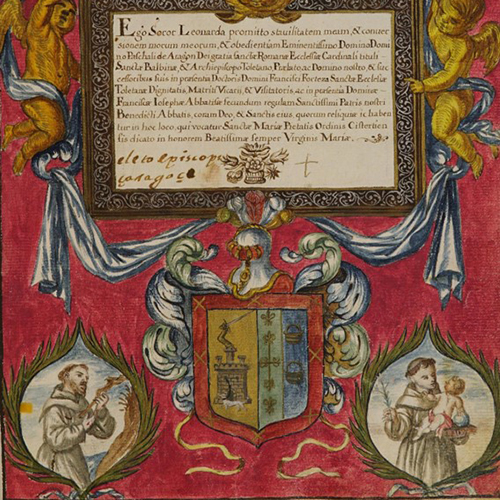 Ego Soror Leouarda promitto stauilitatem meam, & conuer
sionem morum meorum, & obedientiam Eminentissimo Domino Domi
no Paschali de Aragon Dei gratia sanctæ Romanæ Ecclesiæ Cardinali tituli
Sanctæ Balbinæ, & Archiepiscopo Toletano Prælato ac Domino nostro & suc
cessoribus suis in præsentia Doctoris Domini Francisci Forteza Sanctæ Ecclesiæ
Toletanæ Dignitatis, Matrii Vicarii, & Visitatoris, ac in præsentia Dominæ
Franciscæ Iosephæ Abbatissæ secundum regulam Sanctissimi Patris nostri
Benedicti Abbatis, coram Deo, & Sanctis eius, quorum reliquiæ ic haben
tur in hoc loco, qui vocatur Sanctæ Mariæ Pietatis Ordinis Cistercien
sis dicato in honorem Beatissimæ semper Virginis Mariæ.
electo Episcopo